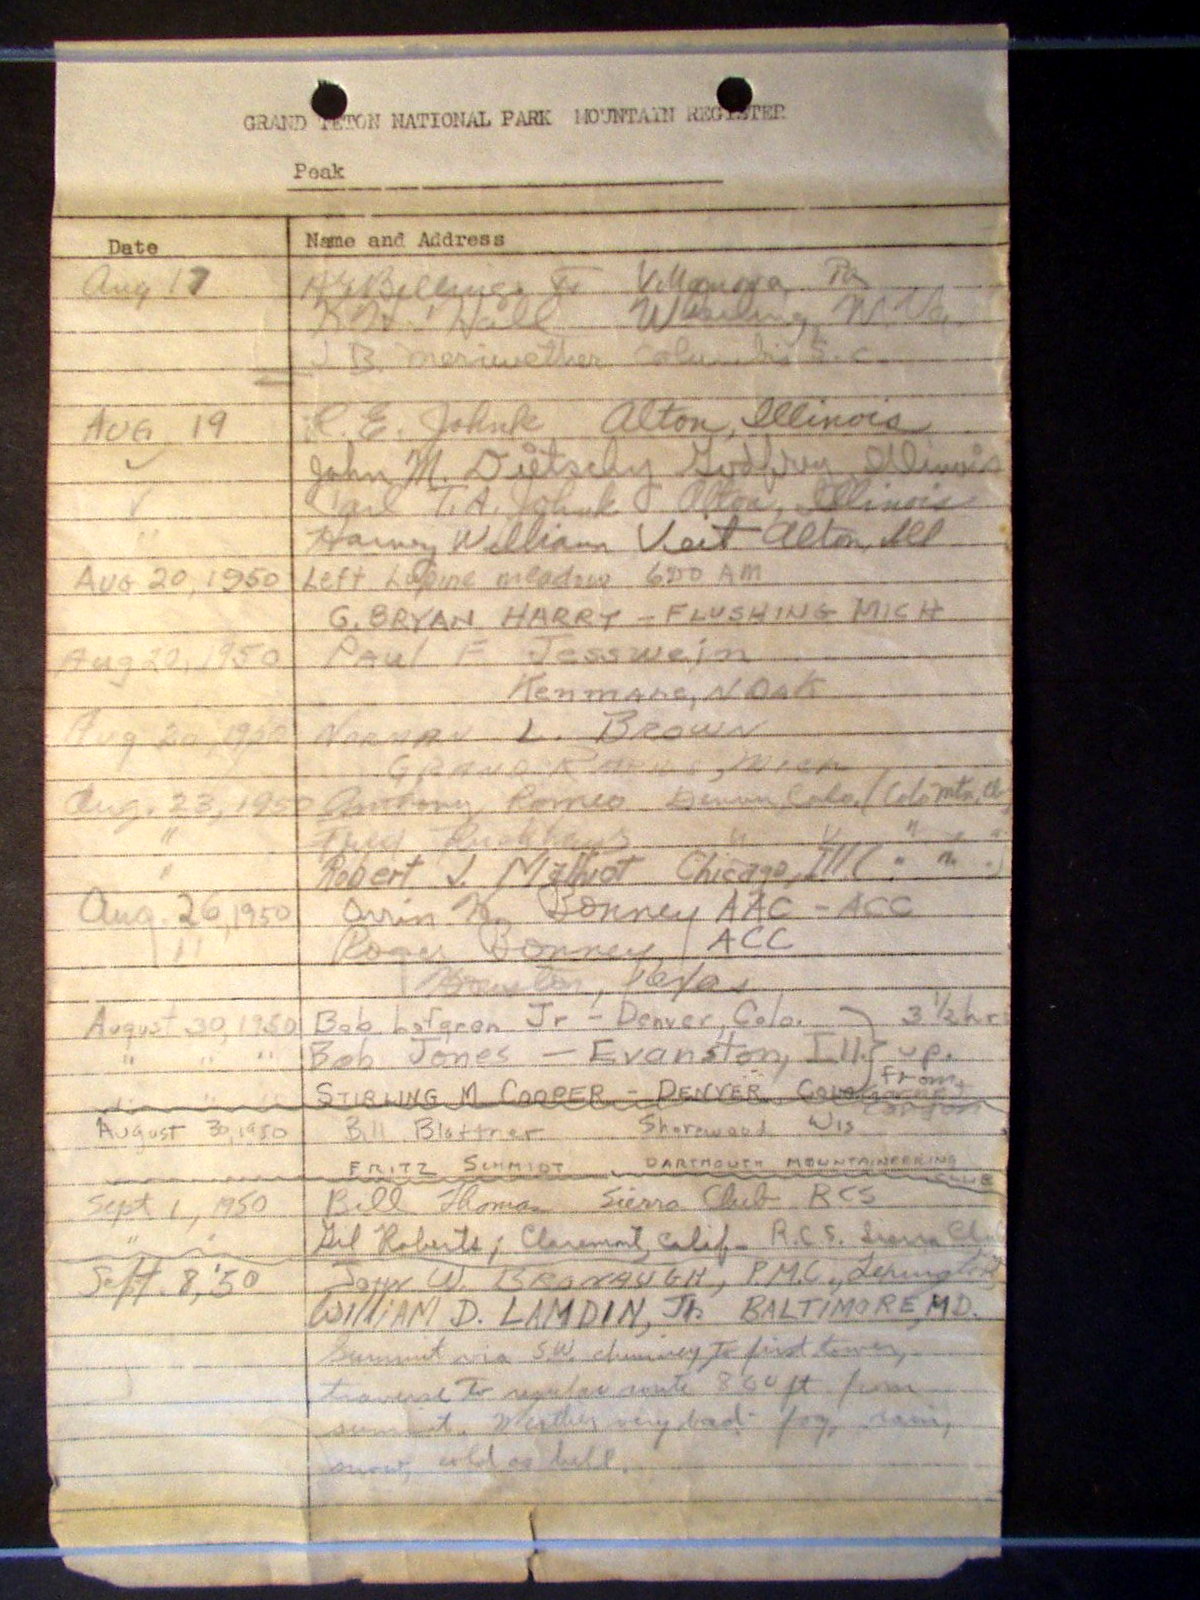 GRAND TETON NATIONAL PARK MOUNTAIN REGISTER
Peak
Date Name and Address
Aug 17 Billings Jr Villanova, Pa
Hall Wheeling, W. Va.
J. B. Meriwether Columbia S.C.
AUG 19 R. E. Johnk Alton, Illinois
John M. Dietschy Godfrey, Illinois
Carl T. A. Johnk Alton, Illinois
" Harvey William Veit Alton, Ill
AUG 20, 1950 Left Lupine meadow 600 AM
G. BRYAN HARRY - FLUSHING MICH
Aug 20, 1950 Paul F Jesswein
Kenmare, N DAK
Aug 20, 1950 NORMAN L. BROWN
GRAND RAPIDS, MICH
Aug. 23, 1950 Anthony Romeo Denver, Colo. (Colo Mtn. Club
" Fred " " " " "
" Robert J. Mathiot Chicago, Ill ( " " " )
Aug. 26, 1950 Orrin H. Bonney AAC - ACC
" Roger Bonney ACC
Houston, Texas
August 30, 1950 Bob Lofgren Jr - Denver, Colo. 3 1/2 hr
" " " Bob Jones - Evanston, Ill. up.
" " " STIRLING M COOPER - DENVER COLO from
Garnet Canyon
August 30, 1950 Bill Blattner Shorewood Wis
FRITZ SCHMIDT DARTMOUTH MOUNTAINEERING
CLUB
Sept 1, 1950 Bill Thomas Sierra Club RCS
" " Gil Roberts, Claremont, Calif - R.C.S. Sierra Club
Sept. 8, '50 JOHN W. BRONAUGH, P.M.C., Lexington
WILLIAM D. LAMDIN, Jr. BALTIMORE, MD.
Summit via S.W. chimney to first tower,
traverse to regular route 800 ft from
summit. Weather very bad - fog, rain,
snow, cold as hell.